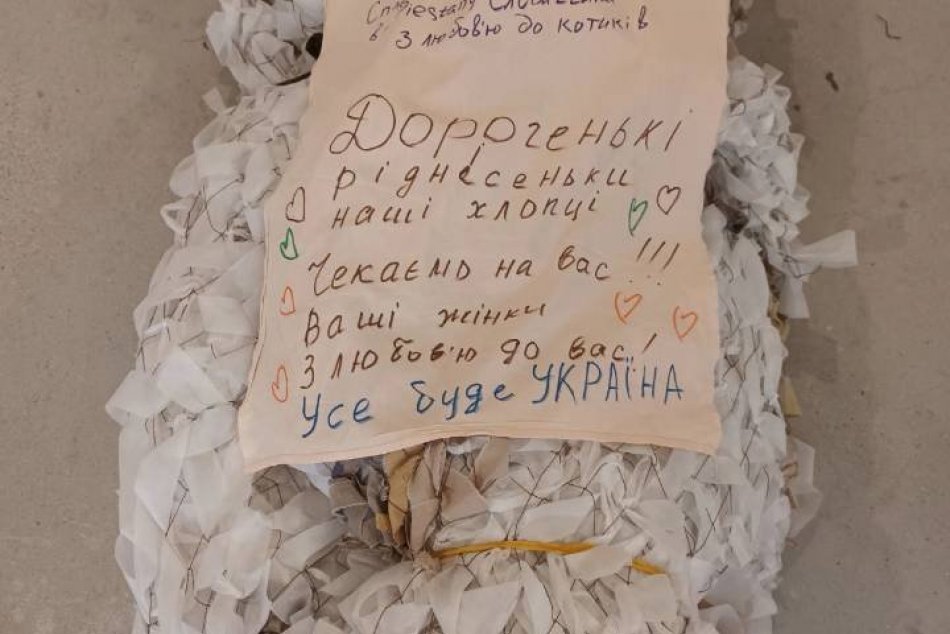 З любов'ю до котиків
Дорогенькі
ріднесенькі
наші хлопці
Чекаємо на вас!!!
Ваші жінки
З любов'ю до вас!
Усе буде УКРАЇНА